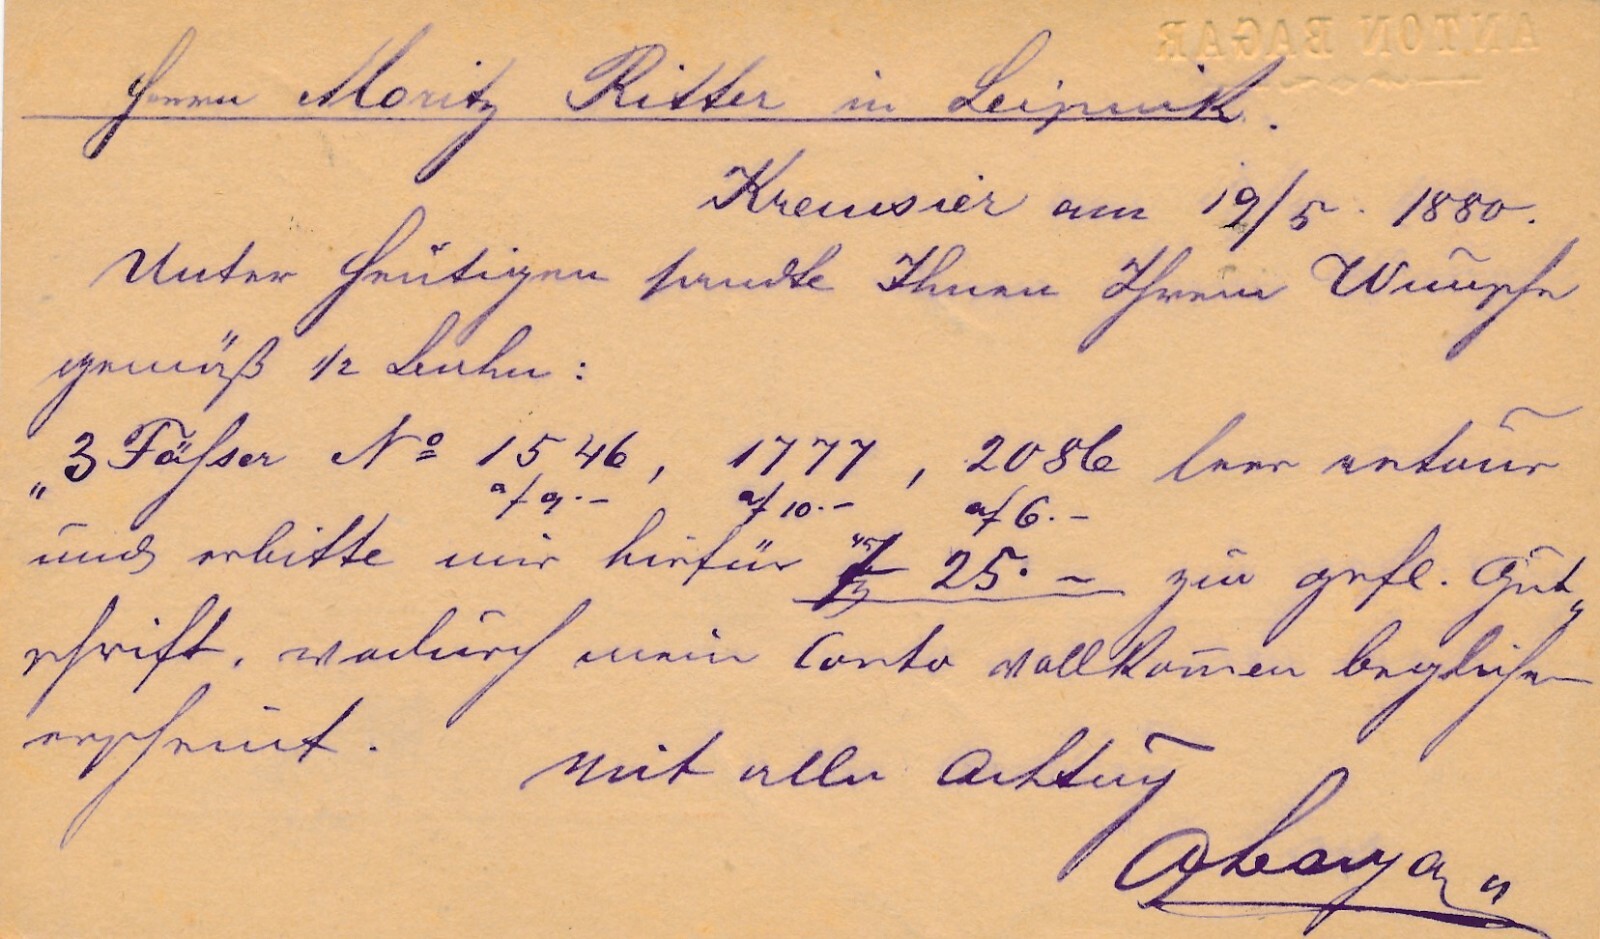 ANTON BAGAR
Herrn Moritz Ritter in Leipnik.
Kremsier am 19/5. 1880.
Unter heutigen sandte Ihnen Ihrem Wunsche
gemäß 1/2 Bahn:
"3 Fässer No 1546, 1777, 2086 leer retour
a f 9.- a f 10.- a f 6.-
und erbitte mir hiefür f 25.- zur gefl. Gut„
schrift, wodurch mein Conto vollkommen beglichen
erscheint.
Mit aller Achtung